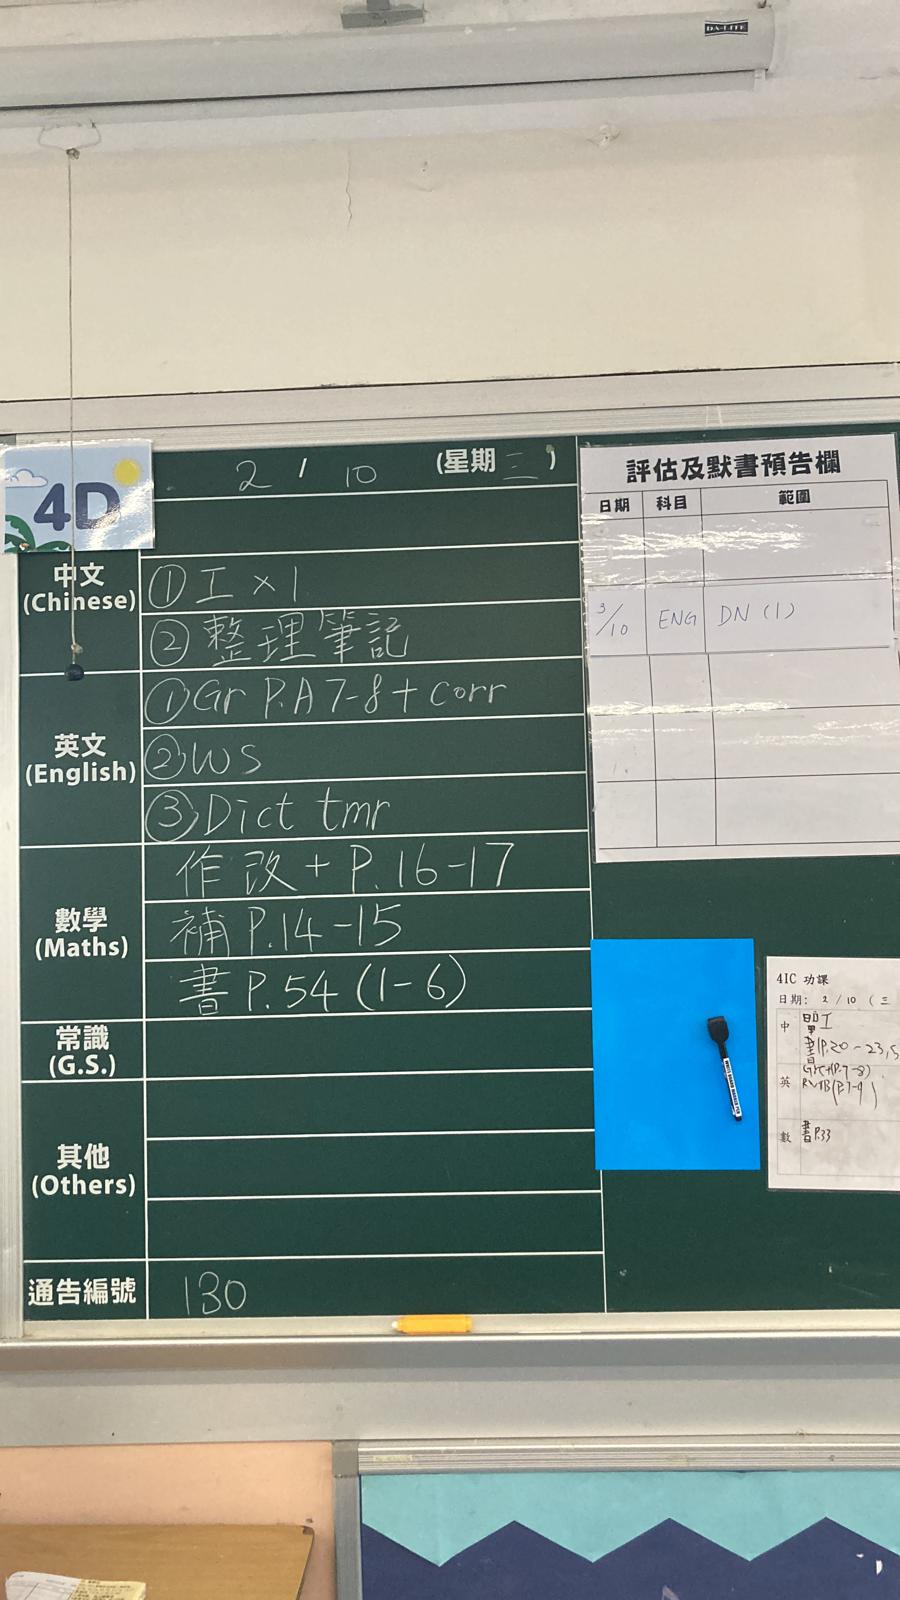 DA-LITE
4D
2 / 10 (星期三)
中文
(Chinese)
① 工 × 1
② 整理筆記
英文
(English)
① Gr P.A7-8 + corr
② WS
③ Dict tmr
數學
(Maths)
作改 + P.16-17
補 P.14-15
書 P.54 (1-6)
常識
(G.S.)
其他
(Others)
通告編號
130
評估及默書預告欄
日期 科目 範圍
3/10 ENG DN (1)
4IC 功課
日期: 2 / 10 ( 三
中 工
P.20-23,5
英 (P.7-8)
數 書 P.33